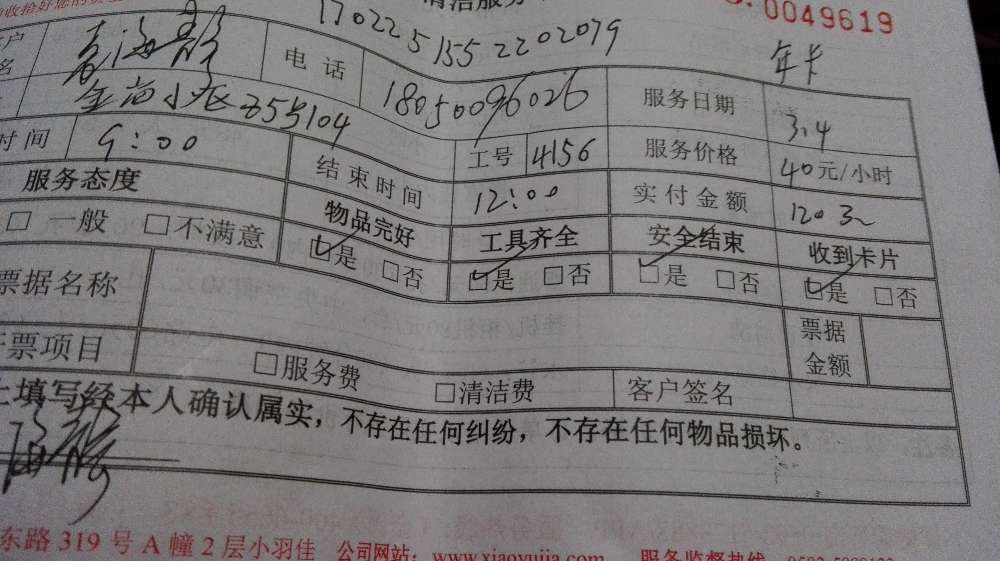 清洁服务 0049619
170225155 2202079 年卡
电 话 18050096026 服务日期 3.4
小区 855104
时间 9:00 工号 4156 服务价格 40元/小时
服务态度 结束时间 12:00 实付金额 120
□ 一般 □ 不满意 物品完好 工具齐全 安全结束 收到卡片
☑是 □否 ☑是 □否 ☑是 □否 ☑是 □否
票据名称 票据金额
票项目 □服务费 □清洁费 客户签名
填写经本人确认属实，不存在任何纠纷，不存在任何物品损坏。
东路 319 号 A 幢 2 层小羽佳 公司网站：www.xiaoyujia.com 服务监督热线